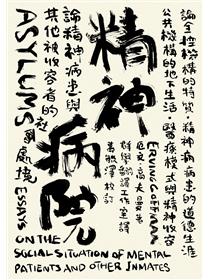 論全控機構的特質、精神病患的道德生涯
公共機構的地下生活、醫療模式與精神收容
精神
病院
ERVING GOFFMAN
厄文高夫曼著
群學翻譯工作室譯
萬毓澤校訂
論精神病患與
其他被收容者的
社會處境
ASYLUMS
ESSAYS
ON THE
SOCIAL SITUATION OF MENTAL
PATIENTS AND OTHER INMATES